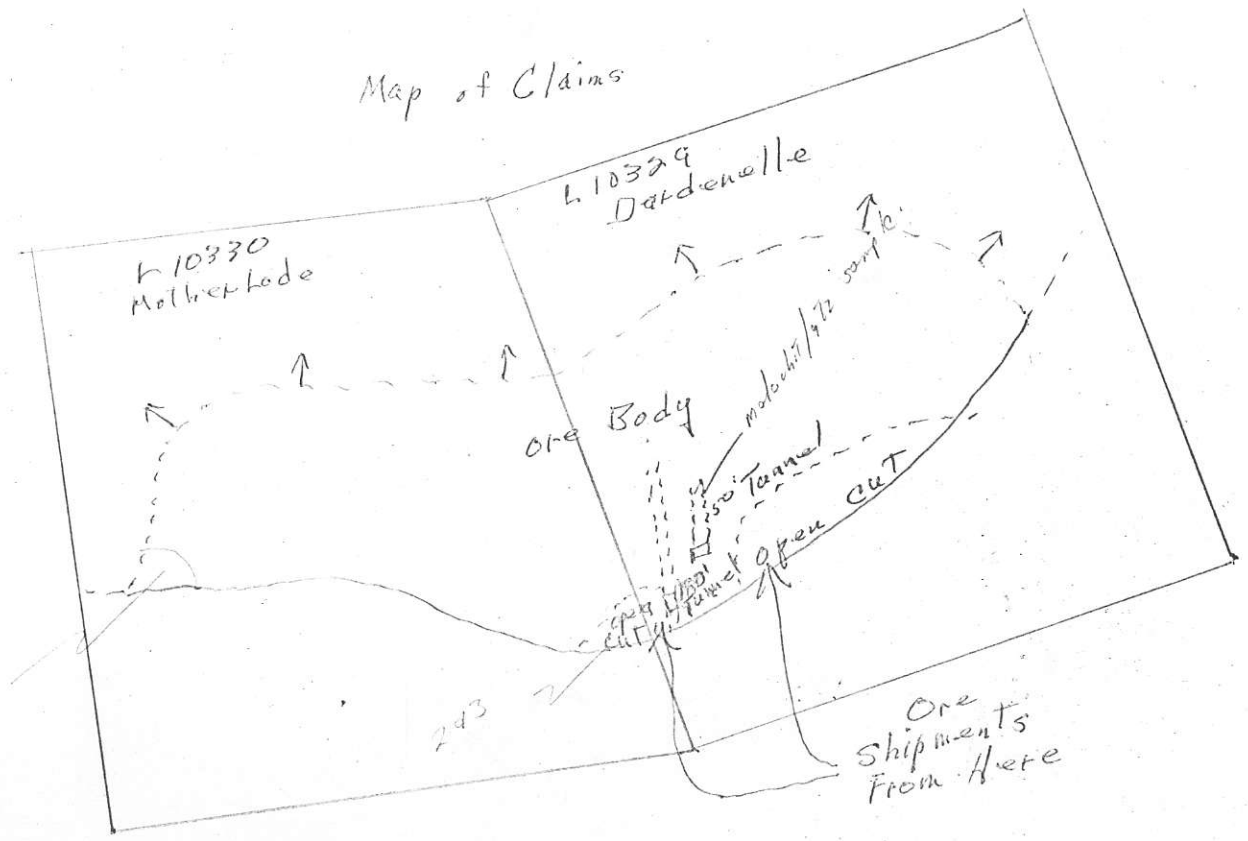 Map of Claims
L 10329
Dardenelle
L 10330
MotherLode
malachit/qtz sample
ore Body
50' Tunnel
open cut
open
cut
130'
Tunnel
Ore
Shipments
From Here